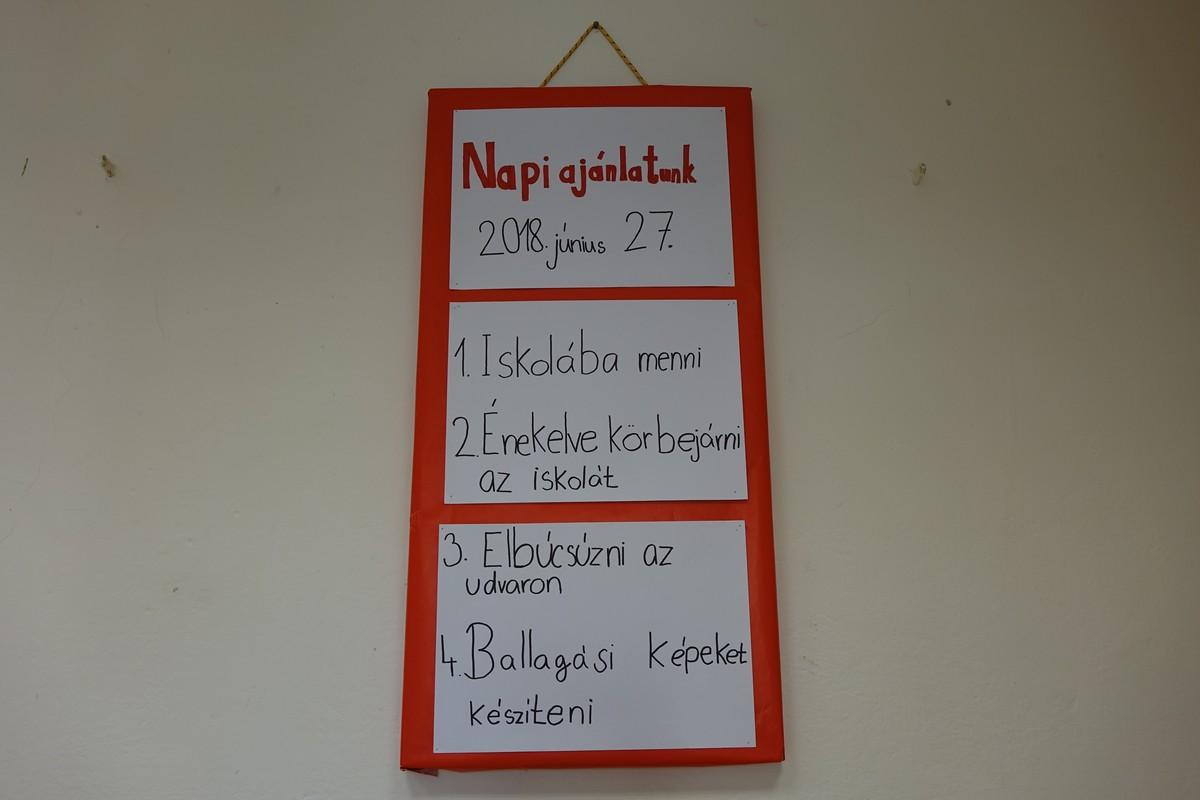 Napi ajánlatunk
2018. június 27.
1. Iskolába menni
2. Énekelve körbejárni
az iskolát
3. Elbúcsúzni az
udvaron
4. Ballagási képeket
készíteni